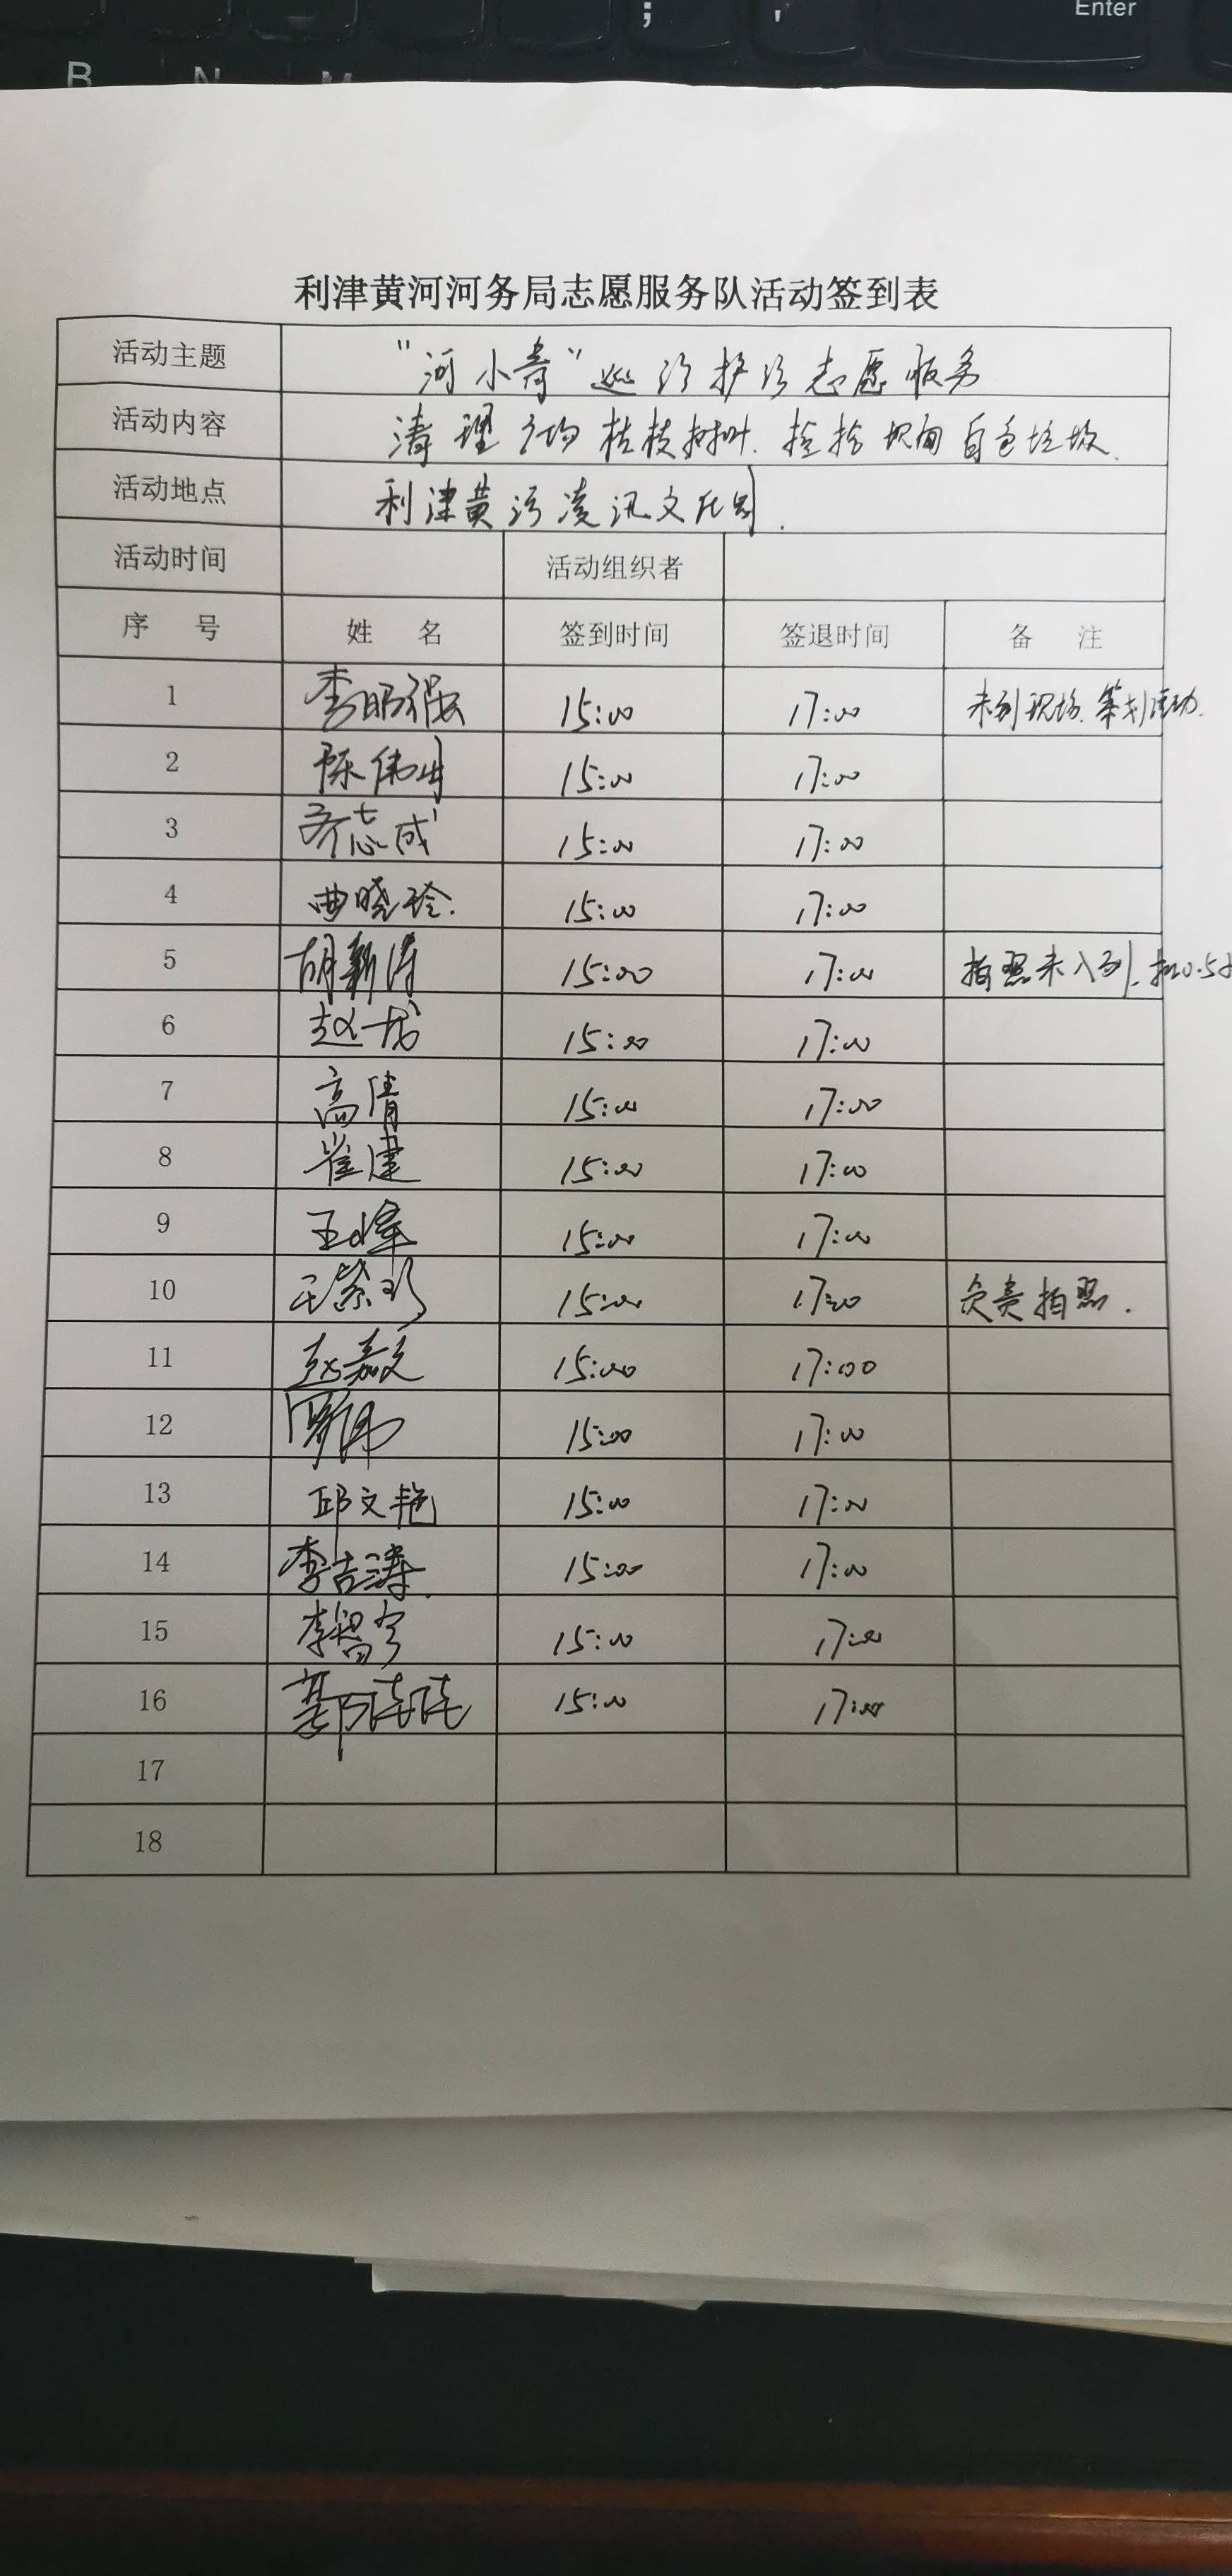 ; ' Enter
B N M
利津黄河河务局志愿服务队活动签到表
活动主题 "河小青"巡河护河志愿服务
活动内容 清理广场枯枝树叶、捡拾坝面白色垃圾.
活动地点 利津黄河凌汛文化园.
活动时间 活动组织者
序 号 姓 名 签到时间 签退时间 备 注
1 15:00 17:00 未到现场、策划活动.
2 陈伟 15:00 17:00
3 齐志成 15:00 17:00
4 曲晓玲. 15:00 17:00
5 胡新涛 15:00 17:00 拍照未入列、扣0.5
6 赵龙 15:00 17:00
7 高倩 15:00 17:00
8 崔建 15:00 17:00
9 王峰 15:00 17:00
10 王紫彤 15:00 17:00 负责拍照.
11 赵嘉文 15:00 17:00
12 罗伟 15:00 17:00
13 邱文艳 15:00 17:00
14 李吉涛. 15:00 17:00
15 15:00 17:00
16 15:00 17:00
17
18